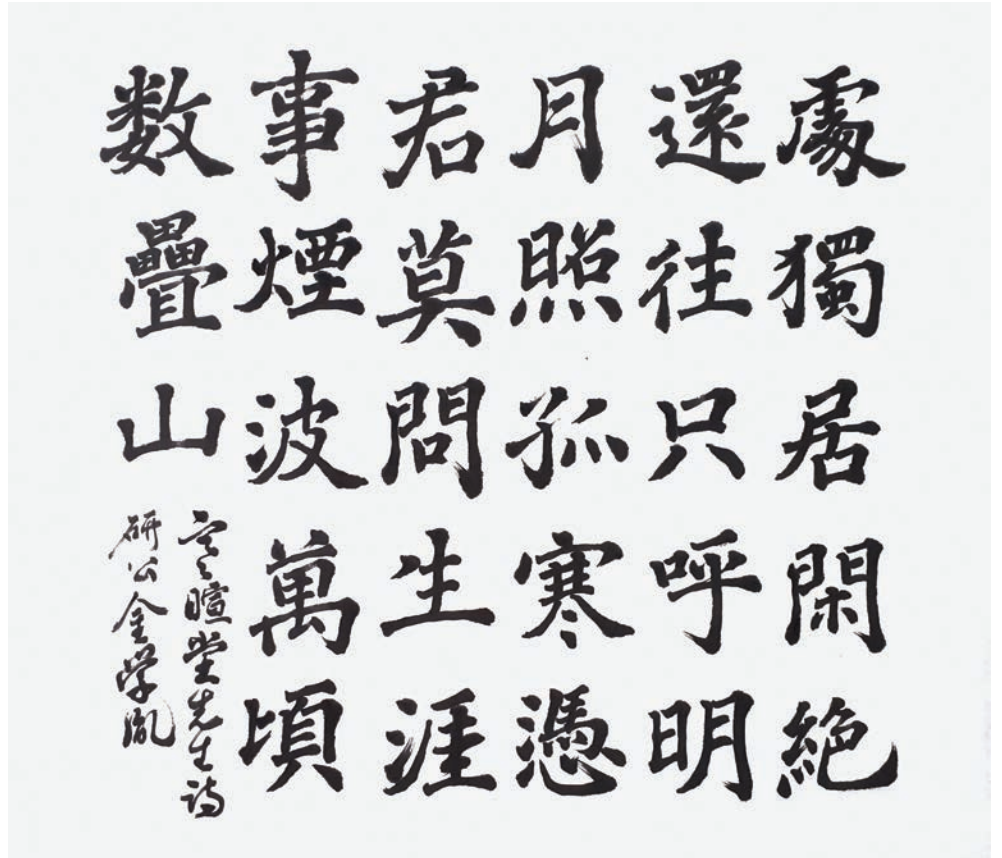 處獨居閑絶
還往只呼明
月照孤寒憑
君莫問生涯
事煙波萬頃
数疊山
寒暄堂先生詩
研公金学胤